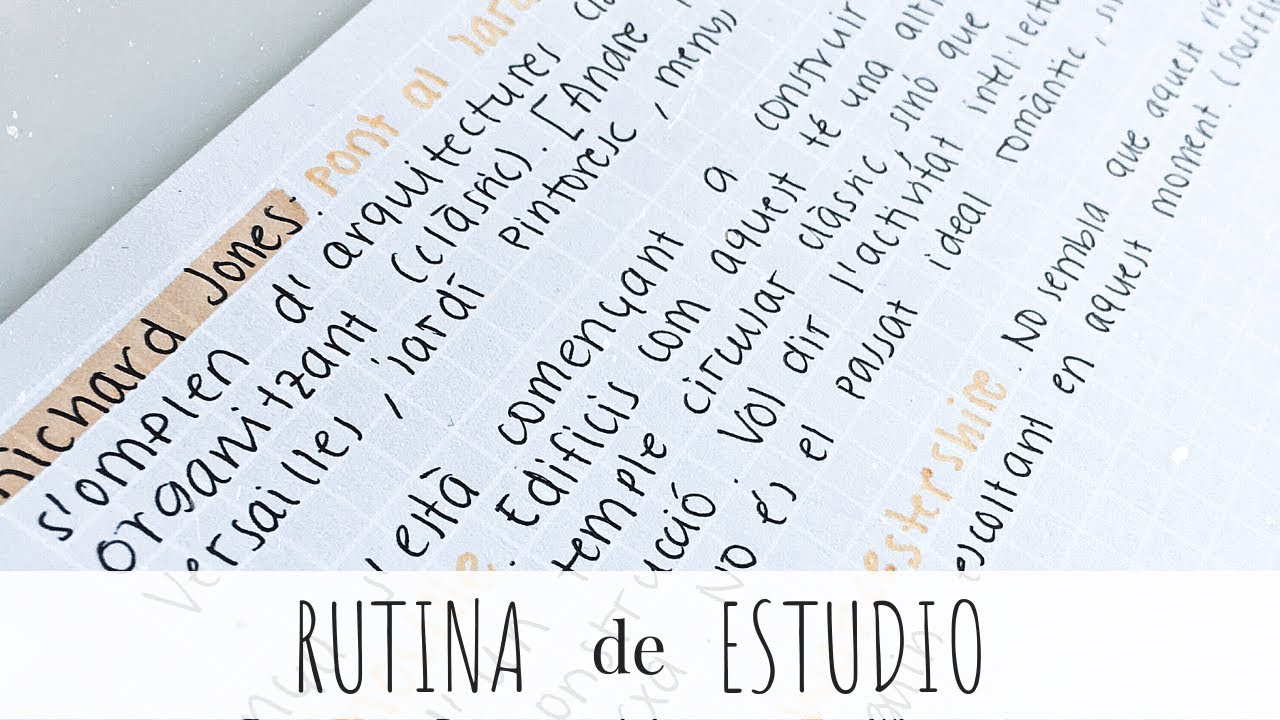 Richard Jones: pont al jard
s'omplen d'arquitectures cla
organitzant (clàssic). [Andre
Versailles, jardí pintoresc, menys
està començant a construir
Edificis com aquest té una altr
temple circular clàssic, sinó que
ucció. Vol dir l'activitat intel·lectu
No és el passat ideal romàntic, sin
estershire. No sembla que aquest
escoltant en aquest moment. (souffl
RUTINA de ESTUDIO